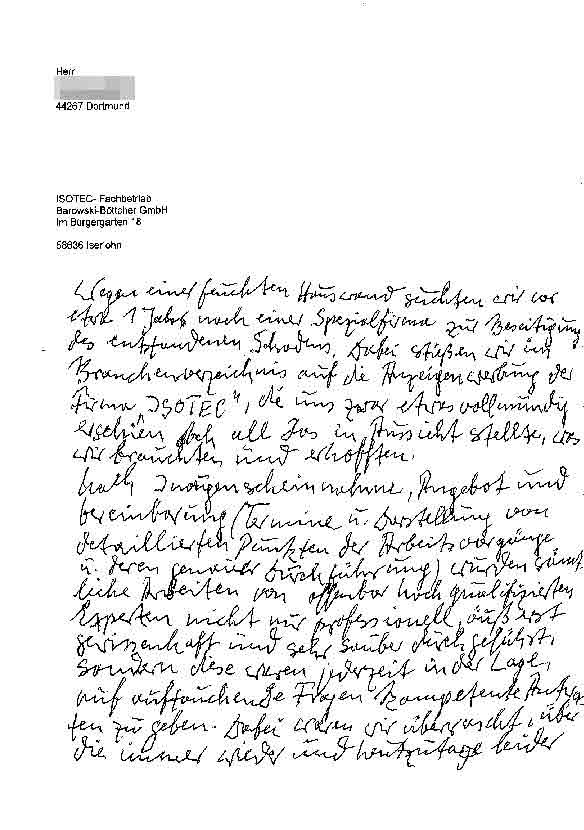 Herr
44267 Dortmund
ISOTEC- Fachbetrieb
Barowski-Böttcher GmbH
Im Bürgergarten 18
58636 Iserlohn
Wegen einer feuchten Hauswand suchten wir vor
etwa 1 Jahr nach einer Spezialfirma zur Beseitigung
des entstandenen Schadens. Dabei stießen wir im
Branchenverzeichnis auf die Anzeigenwerbung der
Firma "ISOTEC", die uns zwar etwas vollmundig
erschien doch all das in Aussicht stellte, was
wir brauchten und erhofften.
Nach Inaugenscheinnahme, Angebot und
Vereinbarung (Termine u. Darstellung von
detaillierten Punkten der Arbeitsvorgänge
u. deren genauer Durchführung) wurden sämt
liche Arbeiten von offenbar hoch qualifizierten
Experten nicht nur professionell, äußerst
gewissenhaft und sehr sauber durchgeführt,
sondern diese waren jederzeit in der Lage,
auf auftauchende Fragen kompetente Antwor
ten zu geben. Dabei waren wir überrascht über
die immer wieder und heutzutage leider